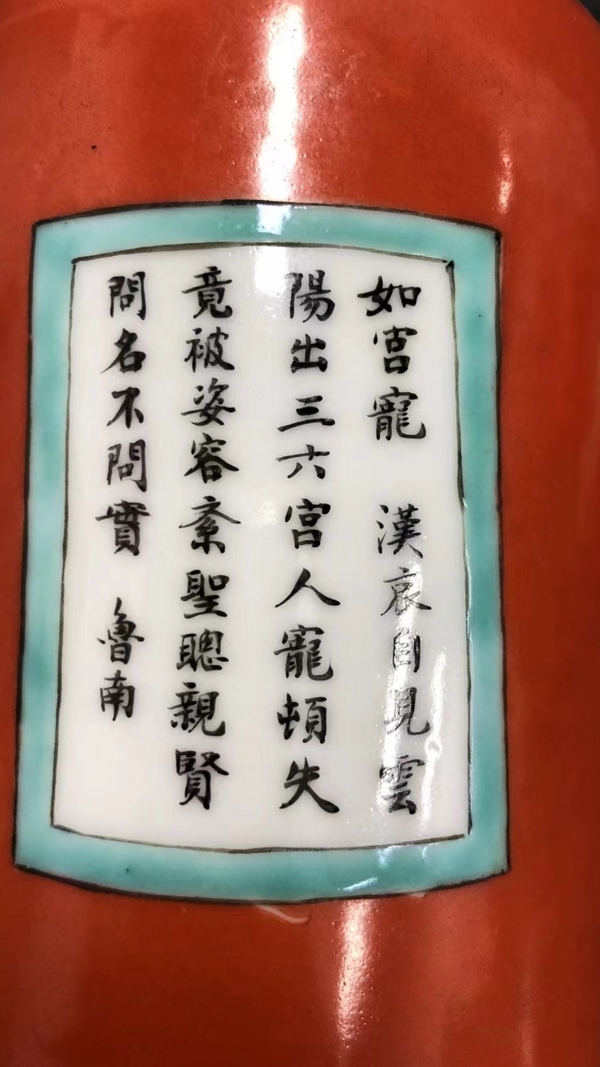 如宮寵 漢哀自見雲
陽出三六宮人寵頓失
竟被姿容紊聖聰親賢
問名不問實 魯南